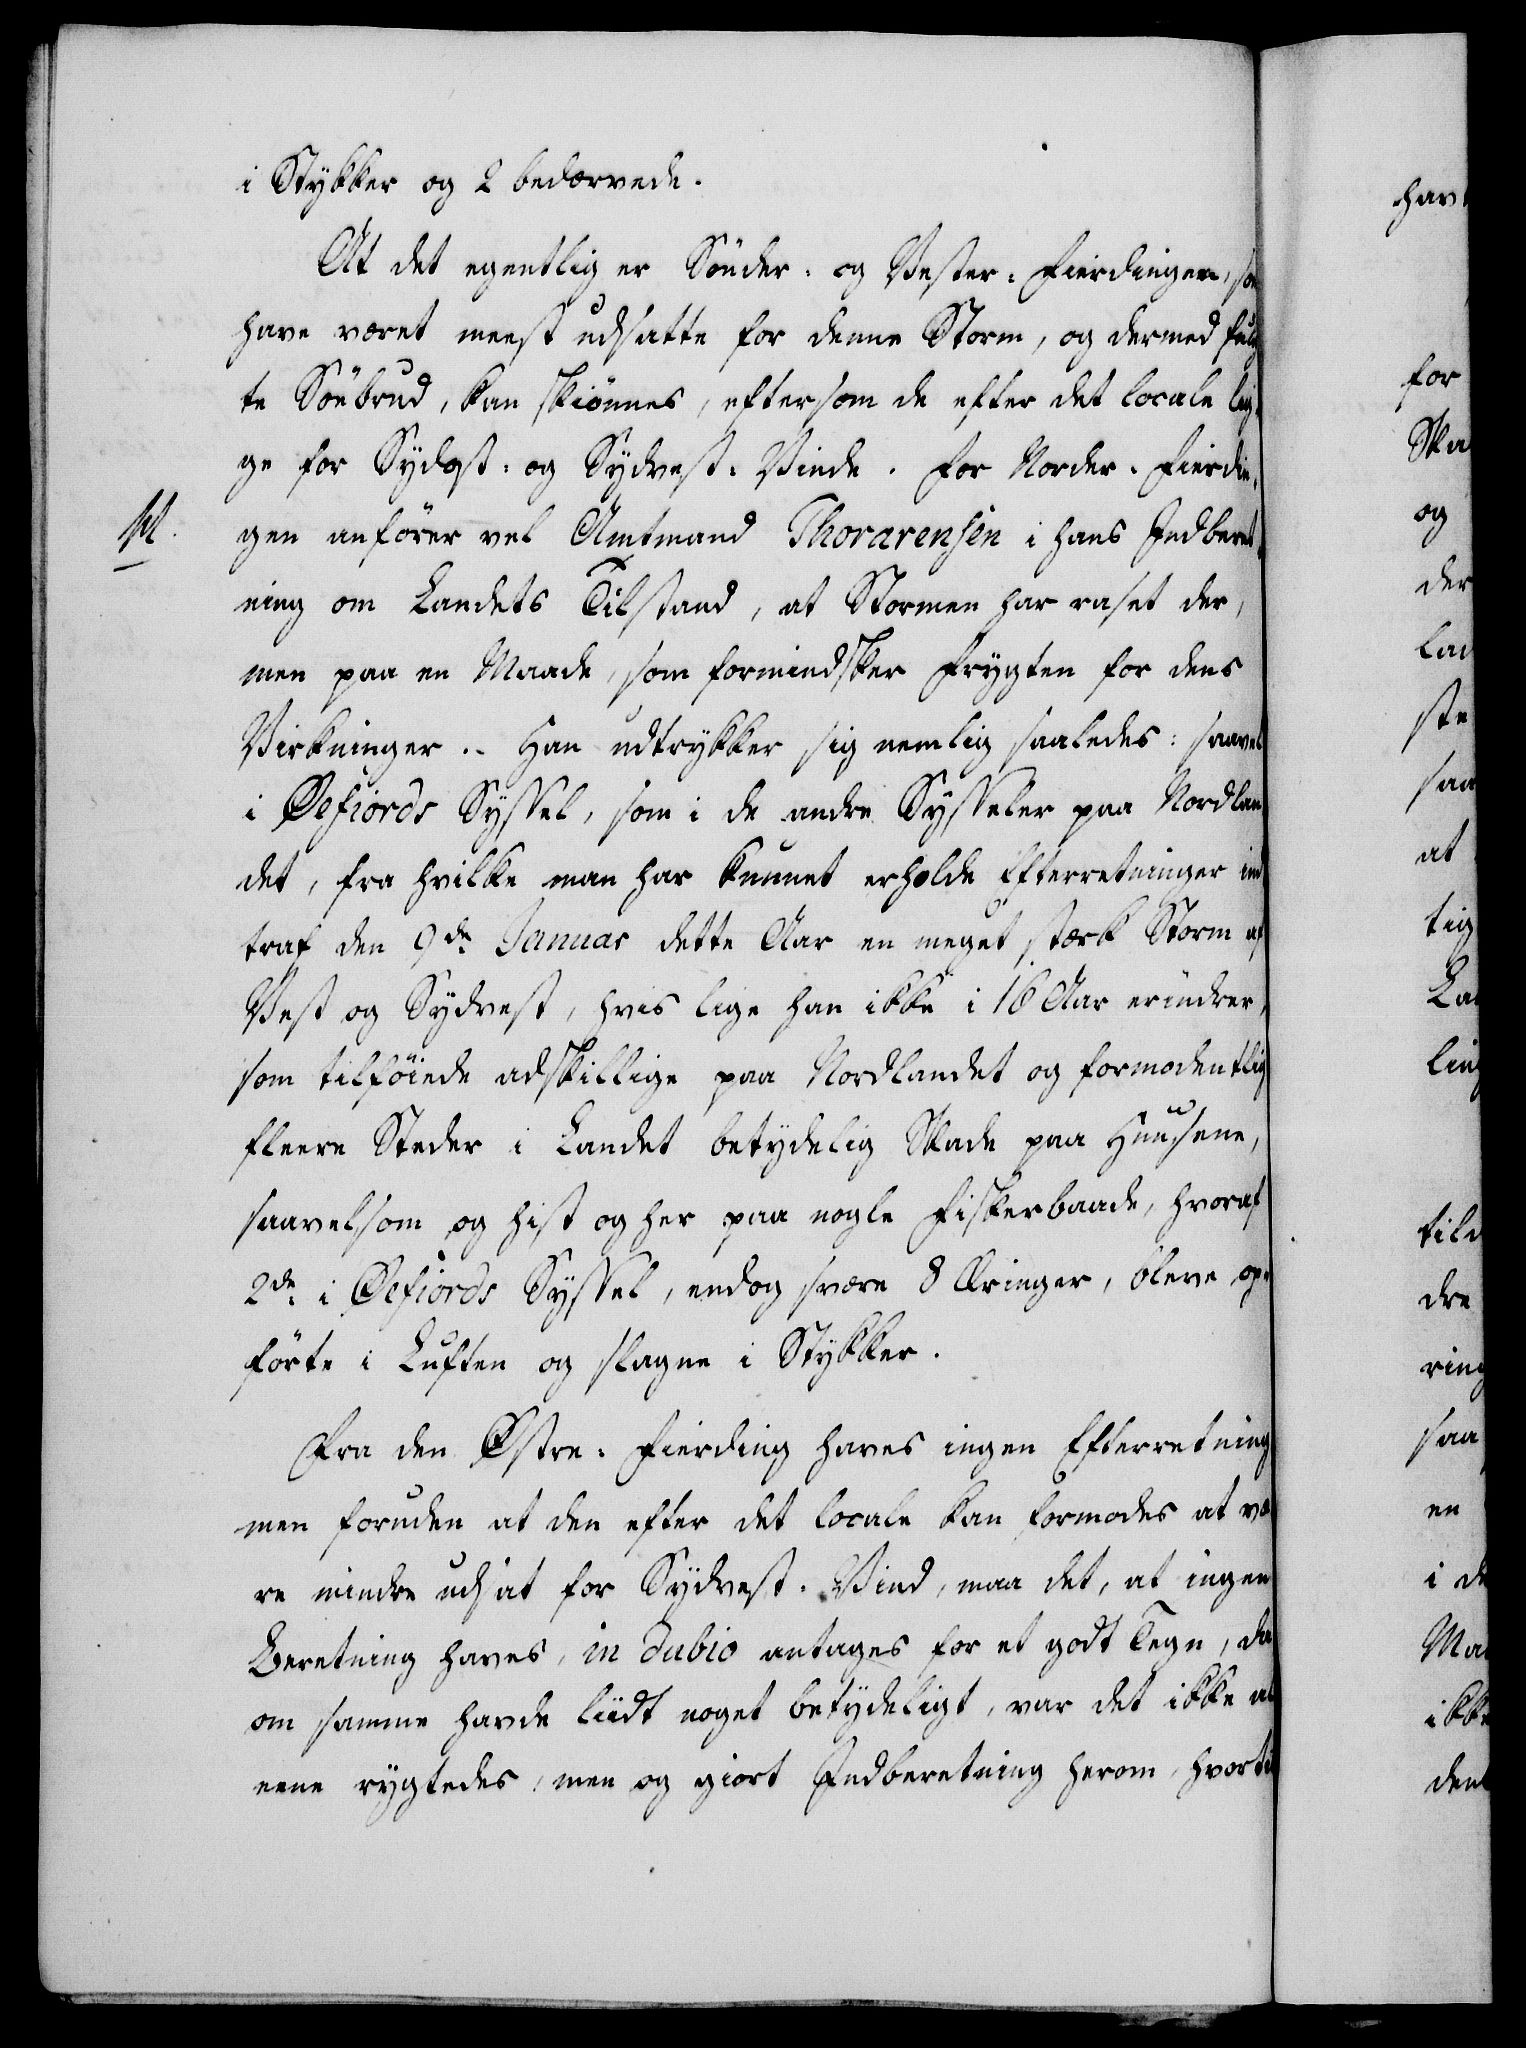 i Stykker og 2 bedærvede.
At det egentlig er Sönder- og Vester-Fierdingen, so
have været meest udsatte for denne Storm, og dermed fulg
te Söebrud, kan skiönnes, eftersom de efter det locale lig-
ge for Sydost- og Sydvest-Vinde. For Norder-Fierdin-
gen anförer vel Amtmand Thorarensen i hans Indberet-
ning om Landets Tilstand, at Stormen har raset der,
men paa en Maade, som formindsker Frygten for dens
Virkninger. - Han udtrykker sig nemlig saaledes: saavel
i Øefiords Syssel, som i de andre Sysseler paa Nordlan
det, fra hvilke man har kunnet erholde Efterretninger ind
traf den 9de Januar dette Aar en meget stærk Storm af
Vest og Sydvest, hvis lige han ikke i 16 Aar erindrer,
som tilföiede adskillige paa Nordlandet og formodentlig
fleere Steder i Landet betydelig Skade paa Huusene,
saavelsom og hist og her paa nogle Fiskerbaade, hvoraf
2de i Øefiords Syssel, endog svære 8 Æringer, bleve op-
förte i Luften og slagne i Stykker.
Fra den Østre-Fierding haves ingen Efterretning
men foruden at den efter det locale kan formodes at væ
re mindre udsat for Sydvest-Vind, maa det, at ingen
Beretning haves, in dubio antages for et godt Tegn, da
om samme havde liidt noget betydeligt, var det ikke al
eene rygtedes, men og giort Indberetning herom, hvorti
havt
for
Ska
og
der
lad
ste
saa
at
tig
La
ling
tild
dre
ring
saa
en
i de
Ma
ikke
den